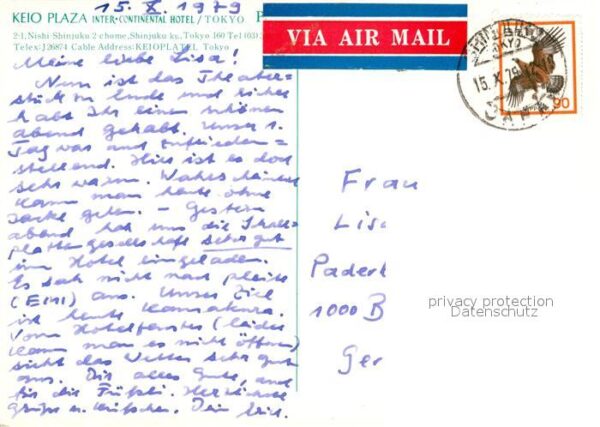 15. X. 1979
KEIO PLAZA INTER·CONTINENTAL HOTEL/TOKYO P
2-1, Nishi Shinjuku 2-chome, Shinjuku-ku, Tokyo 160 Tel (03)
Telex: J26874 Cable Address: KEIOPLATEL Tokyo
VIA AIR MAIL
15. X. 79
90
Meine liebe Lisa!
Nun ist das Theater=
stück zu Ende und sicher
habt Ihr einen schönen
abend gehabt. Unser 1.
Tag war auch zufrieden=
stellend. Hier ist es doch
sehr warm. Wahrscheinlich
kann man heute ohne
Jacke gehen. – Gestern
abend hat uns die Schall=
plattengesellschaft sehr gut
im Hotel eingeladen.
Es sah nicht nach pleite
(EMI) aus. Unser Ziel
ist heute Kamakura.
Vom Hotelfenster (leider
kann man es nicht öffnen)
sieht das Wetter sehr gut
aus. Dir alles Gute, auch
für die Füßli. Herzliche
Grüße u. Küßchen. Dein
Frau
Lisa
Paderb
1000 B
Ger
privacy protection
Datenschutz